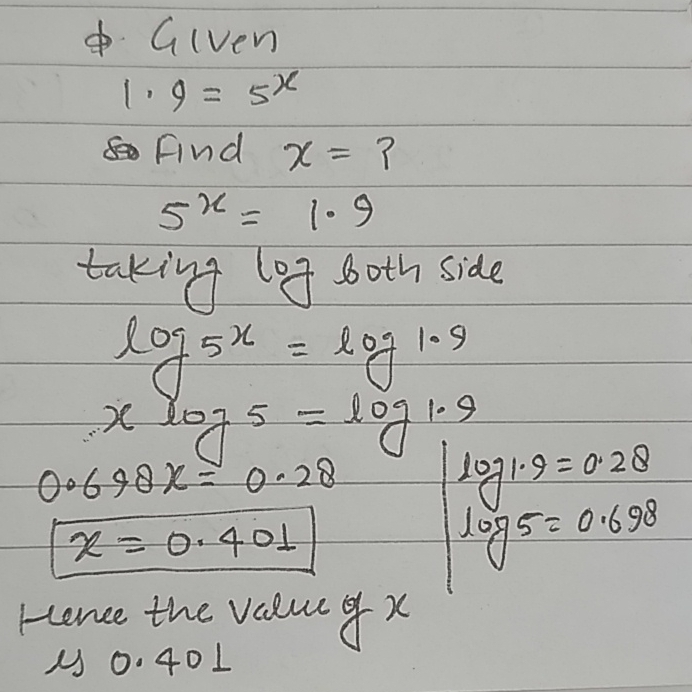 Given
1.9 = 5^x
Find x = ?
5^x = 1.9
taking log both side
log 5^x = log 1.9
x log 5 = log 1.9
0.698x = 0.28
log 1.9 = 0.28
log 5 = 0.698
x = 0.401
Hence the value of x
is 0.401